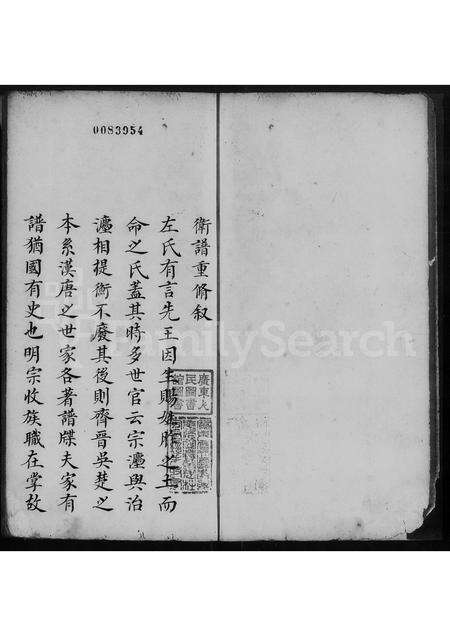 0083954
衛譜重脩叙
左氏有言先王因生賜姓胙之土而
命之氏蓋其時多世官云宗灋與治
灋相提衡不廢其後則齊晉吳楚之
本系漢唐之世家各著譜牒夫家有
譜猶國有史也明宗收族職在掌故
廣東人
民圖書
館圖書
FamilySearch